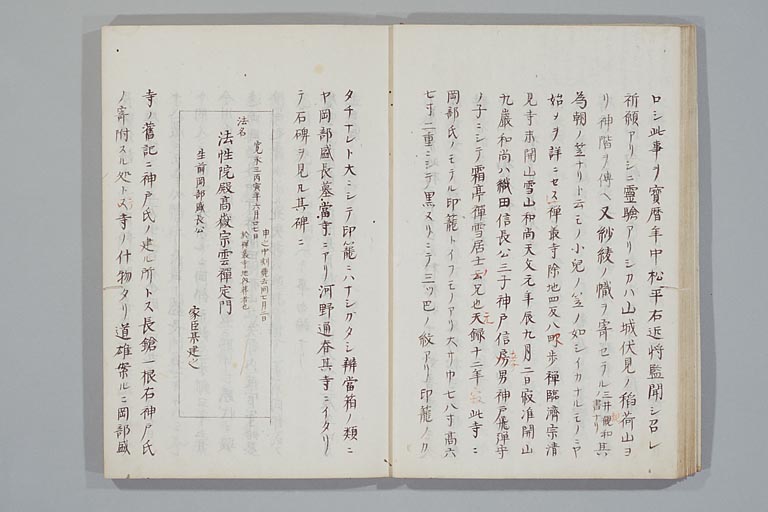 ロシ此事ヲ寳暦年中松平右近将監聞シ召レ
祈願アリシニ靈驗アリシカハ山城伏見ノ稲荷山ヨ
リ神階ヲ傳ヘ又紗綾ノ幟ヲ寄セラル三井親和其書ナリ
為朝ノ笠ナリト云モノ小兒ノ笠ノ如シイカナルモノニヤ
始メヲ詳ニセス禅叢寺除地四反八町歩禅臨濟宗清
見寺末開山雪山和尚天文元年辰九月二日寂准開山
九巌和尚ハ織田信長公三子神戸信房男神戸飛弾守
ノ子ニシテ霜亭禅雪居士ノ兄也天録十二年寂此寺ニ
岡部氏ノモテル印籠トイフモノアリ大サ巾七八寸高六
七寸二重ニシテ黒ヌリニテ三ツ巴ノ紋アリ印籠ノカ
タチナレト大ニシテ印籠ニハナシガタシ辨當箱ノ類ニ
ヤ岡部盛長墓當寺ニアリ河野通春其寺ニイタリ
テ石碑ヲ見ル其碑ニ
寛永三丙寅年六月廿七日
申之中刻發去同七月二日
於禅叢寺地内葬者也
法名
法性院殿高嶽宗雲禪定門
生前岡部盛長公
家臣共建之
寺ノ舊記ニ神戸氏ノ建ル所トス長鎗一根石神戸氏
ノ寄附スル処トス寺ノ什物タリ道雄案ルニ岡部盛